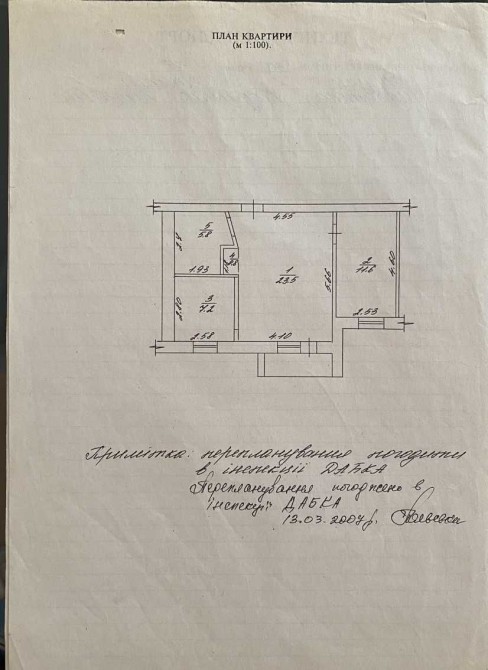 ПЛАН КВАРТИРИ
(м 1:100).
4.55
5
5.8
2.4
1.93
4
1
23.5
5.66
2
11.6
4.60
3
7.2
2.80
2.58
4.10
2.53
Примітка: перепланування погодити
в інспекції ДАБКА
Перепланування погоджено в
інспекції ДАБКА
13.03.2007р.